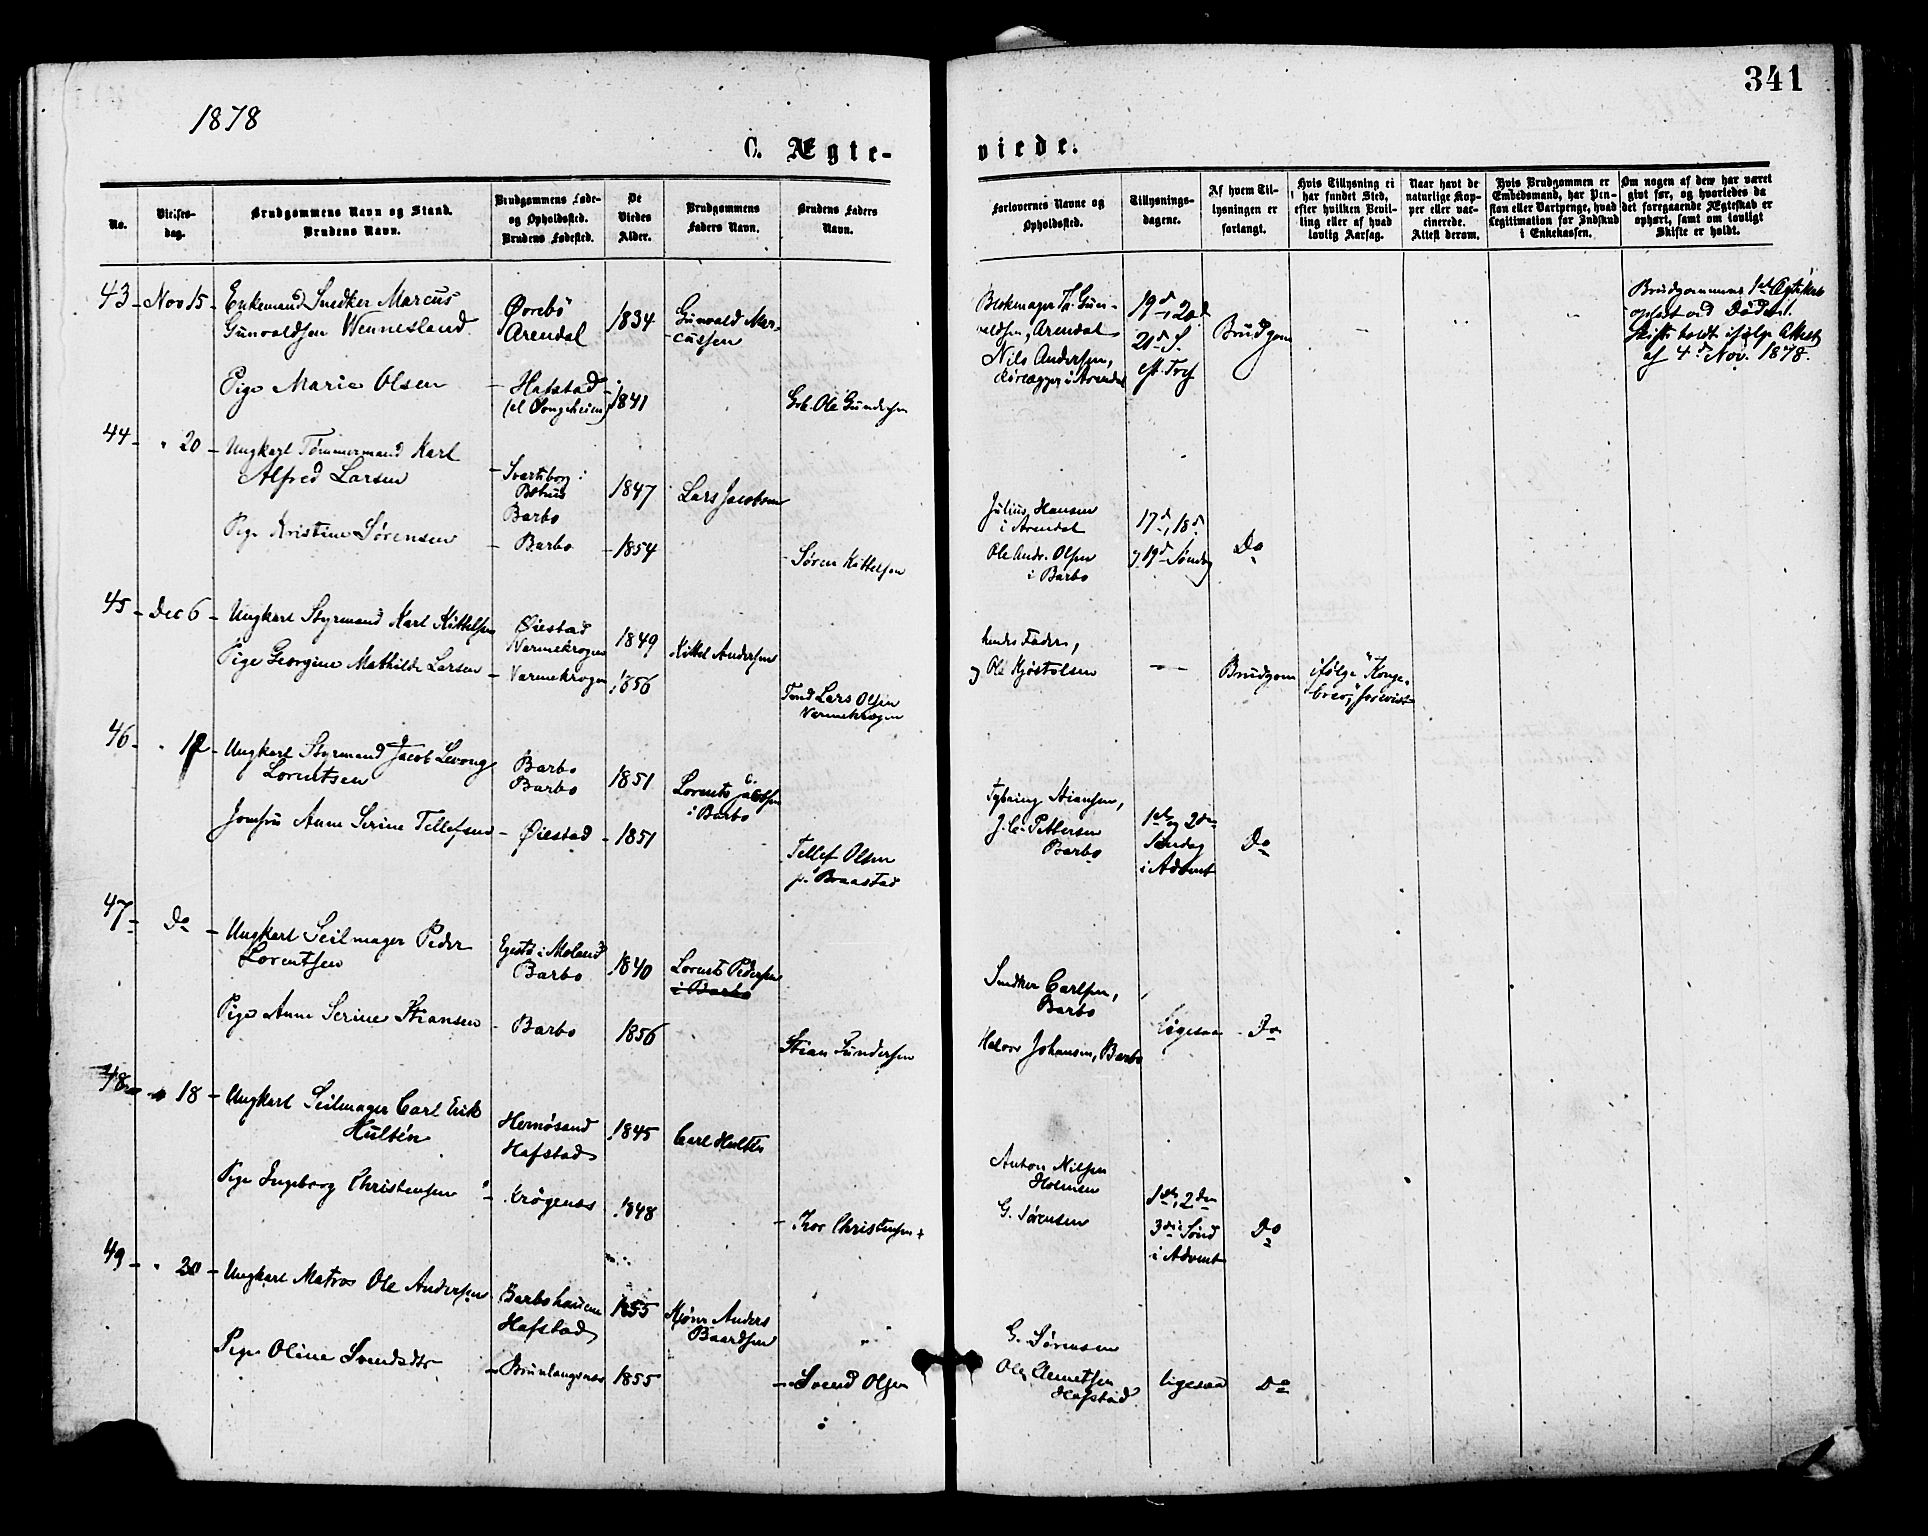 1878
341
C. Ægte-
viede.
No.
Vielses-
dag.
Brudgommens Navn og Stand.
Brudens Navn.
Brudgommens Føde-
og Opholdssted.
Brudens Fødested.
De
Viedes
Alder.
Brudgommens
Faders Navn.
Brudens Faders
Navn.
Forlovernes Navne og
Opholdssted.
Tillysnings-
dagene.
Af hvem Til-
lysningen er
forlangt.
Hvis Tillysning ei
har fundet Sted,
efter hvilken Bevil-
ling eller af hvad
lovlig Aarsag.
Naar havt de
naturlige Kop-
per eller vac-
cinerede.
Attest derom.
Hvis Brudgommen er
Embedsmand, har Pen-
sion eller Vartpenge, hvad
Legitimation for Indskud
i Enkekassen.
Om nogen af dem har været
gift før, og hvorledes da
det foregaaende Ægteskab er
ophørt, samt om lovligt
Skifte er holdt.
43 Nov 15 Enkemand Snedker Marcus
Gunvaldsen Wennesland
Øvrebö
Arendal
1834
Gunvald Mar-
cussen
Pige Marie Olsen
Hafstad
1841
Ole Gundersen
Gun-
valdsen, Arendal
Nils Andersen,
i Arendal
19d, 20d
21d S.
eft. Tref
Brudgom
Brudgommens 1ste Ægteskab
ophørt ved Døden.
Skifte holdt ifølge Attest
af 4d Nov. 1878.
44 " 20 Ungkarl Tømmermand Karl
Alfred Larsen
Svarteborg i
Bohus
Barbo
1847
Lars Jacobsen
Pige Kristine Sørensen
Barbo
1854
Søren Kittelsen
Julius Hansen
i Arendal
Ole Andr. Olsen
i Barbo
17d, 18d
og 19d Søndag
Do
45 Dec 6 Ungkarl Styrmand Karl Kittelsen
Øiestad
Varmekrogen
1849
Kittel Andersen
Pige Georgine Mathilde Larsen
Varmekrogen
1856
Lars Olsen
Varmekrogen
hendes Fader,
og Ole Kjøstolsen
Brudgom
ifølge "Konge-
brev," forevist
46 " 12 Ungkarl Styrmand Jacob Levong
Lorentsen
Barbo
Barbo
1851
Lorents Jacobsen
i Barbo
Jomfru Anne Serine Tellefsen
Øiestad
1851
Tellef Olsen
p. Braastad
Stiansen,
J. C. Pettersen
Barbo
1ste og 2den
Søndag
i Advent
Do
47 Do Ungkarl Seilmager Peder
Lorentsen
i Moland
Barbo
1840
Lorents Pedersen
i Barbo
Pige Anne Serine Stiansen
Barbo
1856
Stian Gundersen
Snedker Carlsen,
Barbo
Halvor Johansen, Barbo
ligesaa
Do
48 " 18 Ungkarl Seilmager Carl Erik
Hultén
Hernösand
Hafstad
1845
Carl Hultén
Pige Ingeborg Christensen
Krøgenes
1848
Christensen
Anton Nilsen
Holmen
G. Sørensen
1ste, 2den
3die Sønd
i Advent
Do
49 " 20 Ungkarl Matros Ole Andersen
Barbohauene
Hafstad
1855
Anders
Baardsen
Pige Oline Svendsdtr
Brunlangsnes
1855
Svend Olsen
G. Sørensen
Ole Clemetsen
Hafstad
ligesaa
Do